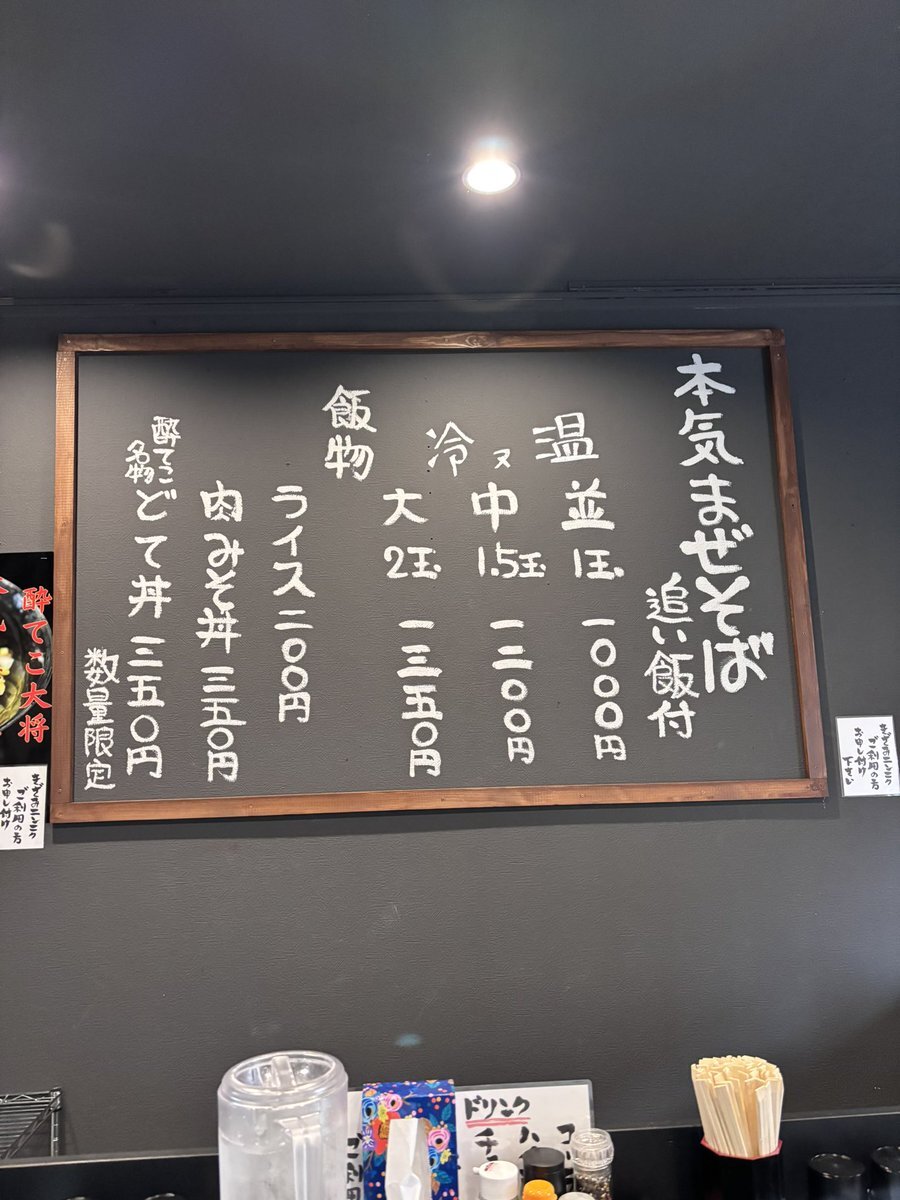 本気まぜそば
追い飯付
温
又
冷
並 1玉 一〇〇〇円
中 1.5玉 一二〇〇円
大 2玉 一三五〇円
飯物
ライス 二〇〇円
肉みそ丼 三五〇円
酔てこ
名物
どて丼 三五〇円
数量限定
酔てこ大将
ニンニク
ご利用の方
お申し付け
下さい
ニンニク
ご利用の方
お申し付け
ドリンク
コ
ハ
チ
ご利用